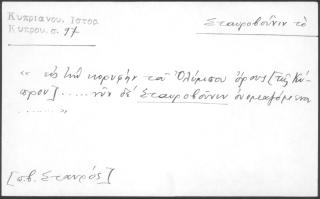 Κυπριανου. Ιστορ.
Κυπρου. σ. 97
Σταυροβοῦνιν τὸ
« εἰς τὴν κορυφὴν τοῦ Ὀλύμπου ὄρους [τῆς Κύ-
πρου] ..... νῦν δὲ Σταυροβούνιν ὀνομαζόμενον
........ »
[πβ. Σταυρός]